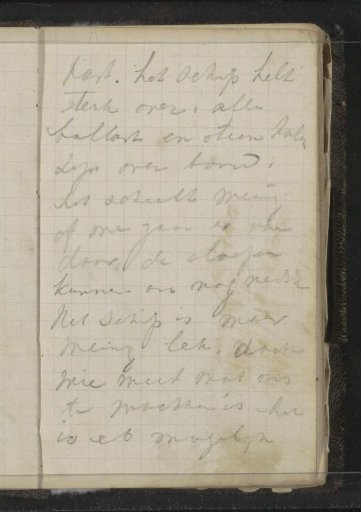 vast. het schip helt
sterk over, alle
ballast en steen kolen
zijn over boord,
het scheelt weinig
of we gaan er van
door, de sloepen
kunnen ons nog redde
Het schip is maar
weinig lek, doch
wie weet wat ons
te wachten is. hoe
is et mogelijk